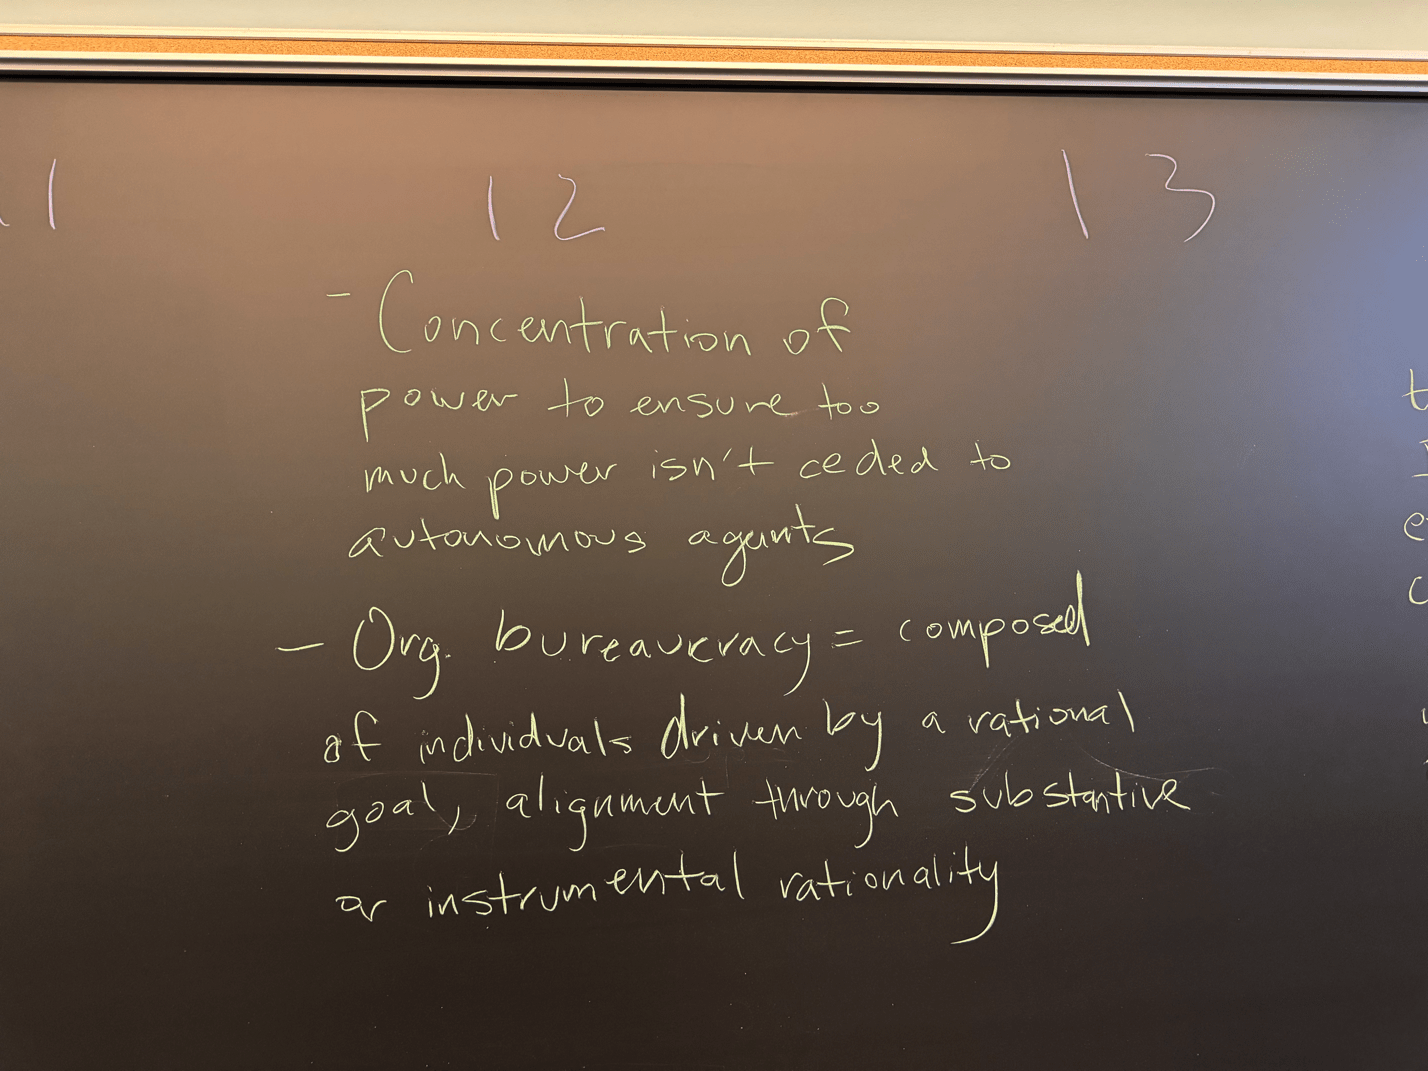 11 12 13
- Concentration of
power to ensure too
much power isn't ceded to
autonomous agents
- Org. bureaucracy = composed
of individuals driven by a rational
goal, alignment through substantive
or instrumental rationality